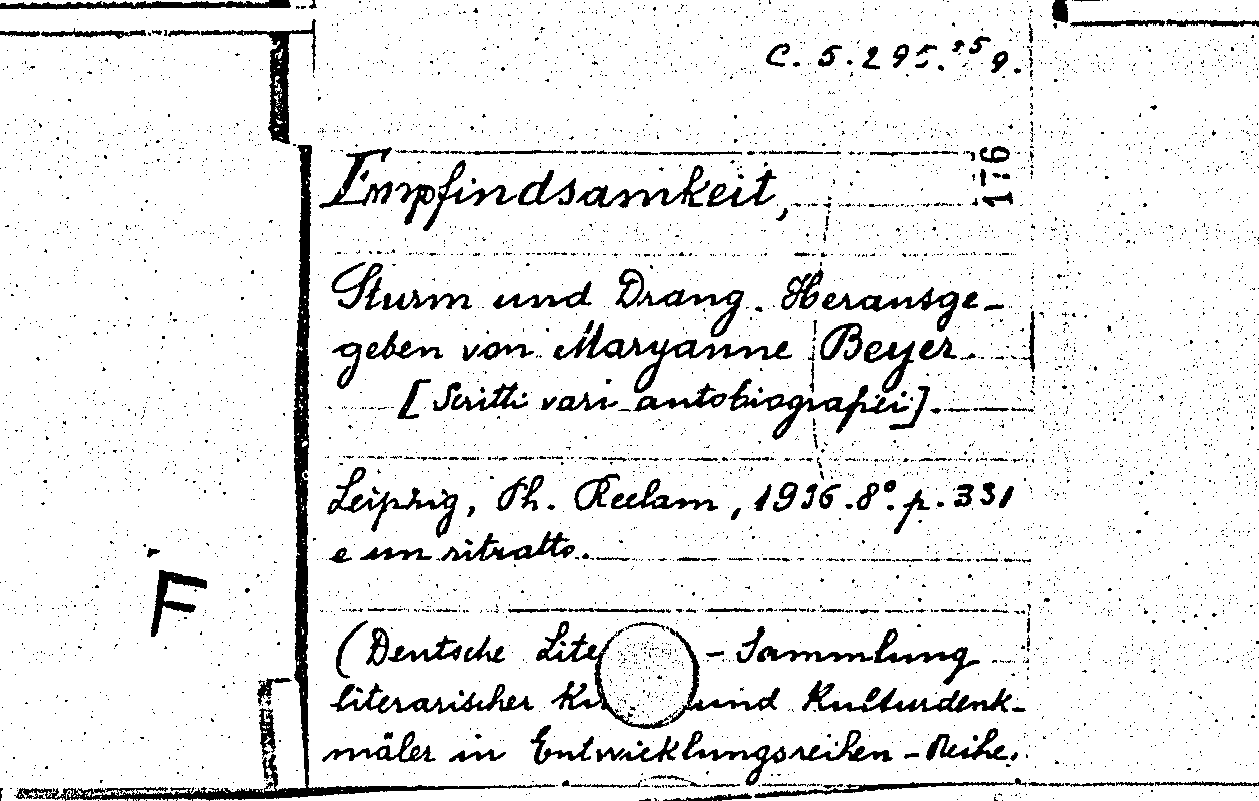 C. 5. 295. 25 9.
176
Empfindsamkeit,
Sturm und Drang. Herausge-
geben von Maryanne Beyer.
[Scritti vari autobiografici].
Leipzig, Ph. Reclam, 1936. 8°. p. 331
e un ritratto.
F
(Deutsche Lite - Sammlung
literarischer Ku und Kulturdenk-
mäler in Entwicklungsreihen - Reihe.